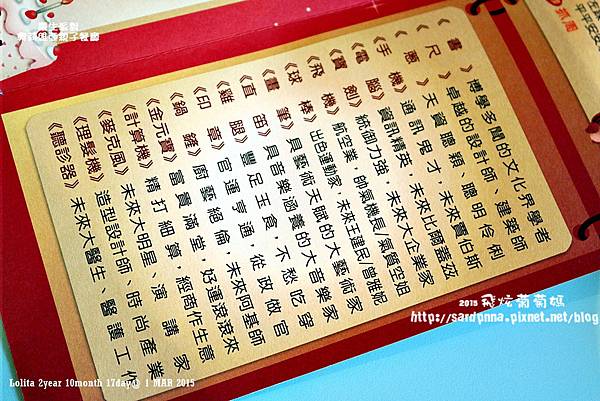 抓周
平平安安
《書》博學多聞的文化界學者
《尺》卓越的設計師、建築師
《蔥》天資聰穎、聰明伶俐
《手機》通訊鬼才，未來賈伯斯
《電腦》資訊精英，未來比爾蓋茲
《寶劍》統御力強，未來大企業家
《飛機》航空業，帥氣機長/氣質空姐
《球棒》出色運動家，未來王建民/曾雅妮
《畫筆》具藝術天賦的大藝術家
《直笛》具音樂涵養的大音樂家
《雞腿》豐足玉食，不愁吃穿
《印章》官運亨通，從政做官
《鍋鏟》廚藝絕倫，未來阿基師
《金元寶》富貴滿堂，好運滾滾來
《計算機》精打細算，經商作生意
《麥克風》未來大明星、演講家
《理髮機》造型設計師、時尚產業
《聽診器》未來大醫生、醫護工作
2015 飛炫葡萄媽
http://sardonna.pixnet.net/blog
Lolita 2year 10month 17day@ 1 MAR 2015